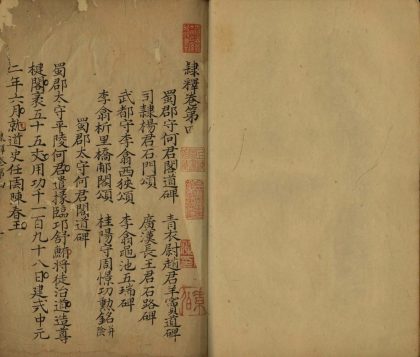 隸釋卷第四
蜀郡守何君閣道碑 青衣尉趙君羊竇道碑
司隸楊君石門頌 廣漢長王君石路碑
武都守李翕西狹頌 李翕黽池五瑞碑
李翕析里橋郙閣頌 桂陽守周憬功勳銘并陰
蜀郡太守何君閣道碑
蜀郡太守平陵何君遣掾臨邛舒鮪將徒治道造尊
楗閣袤五十五丈用功千一百九十八日建武中元
二年六月就道史任雲陳春主